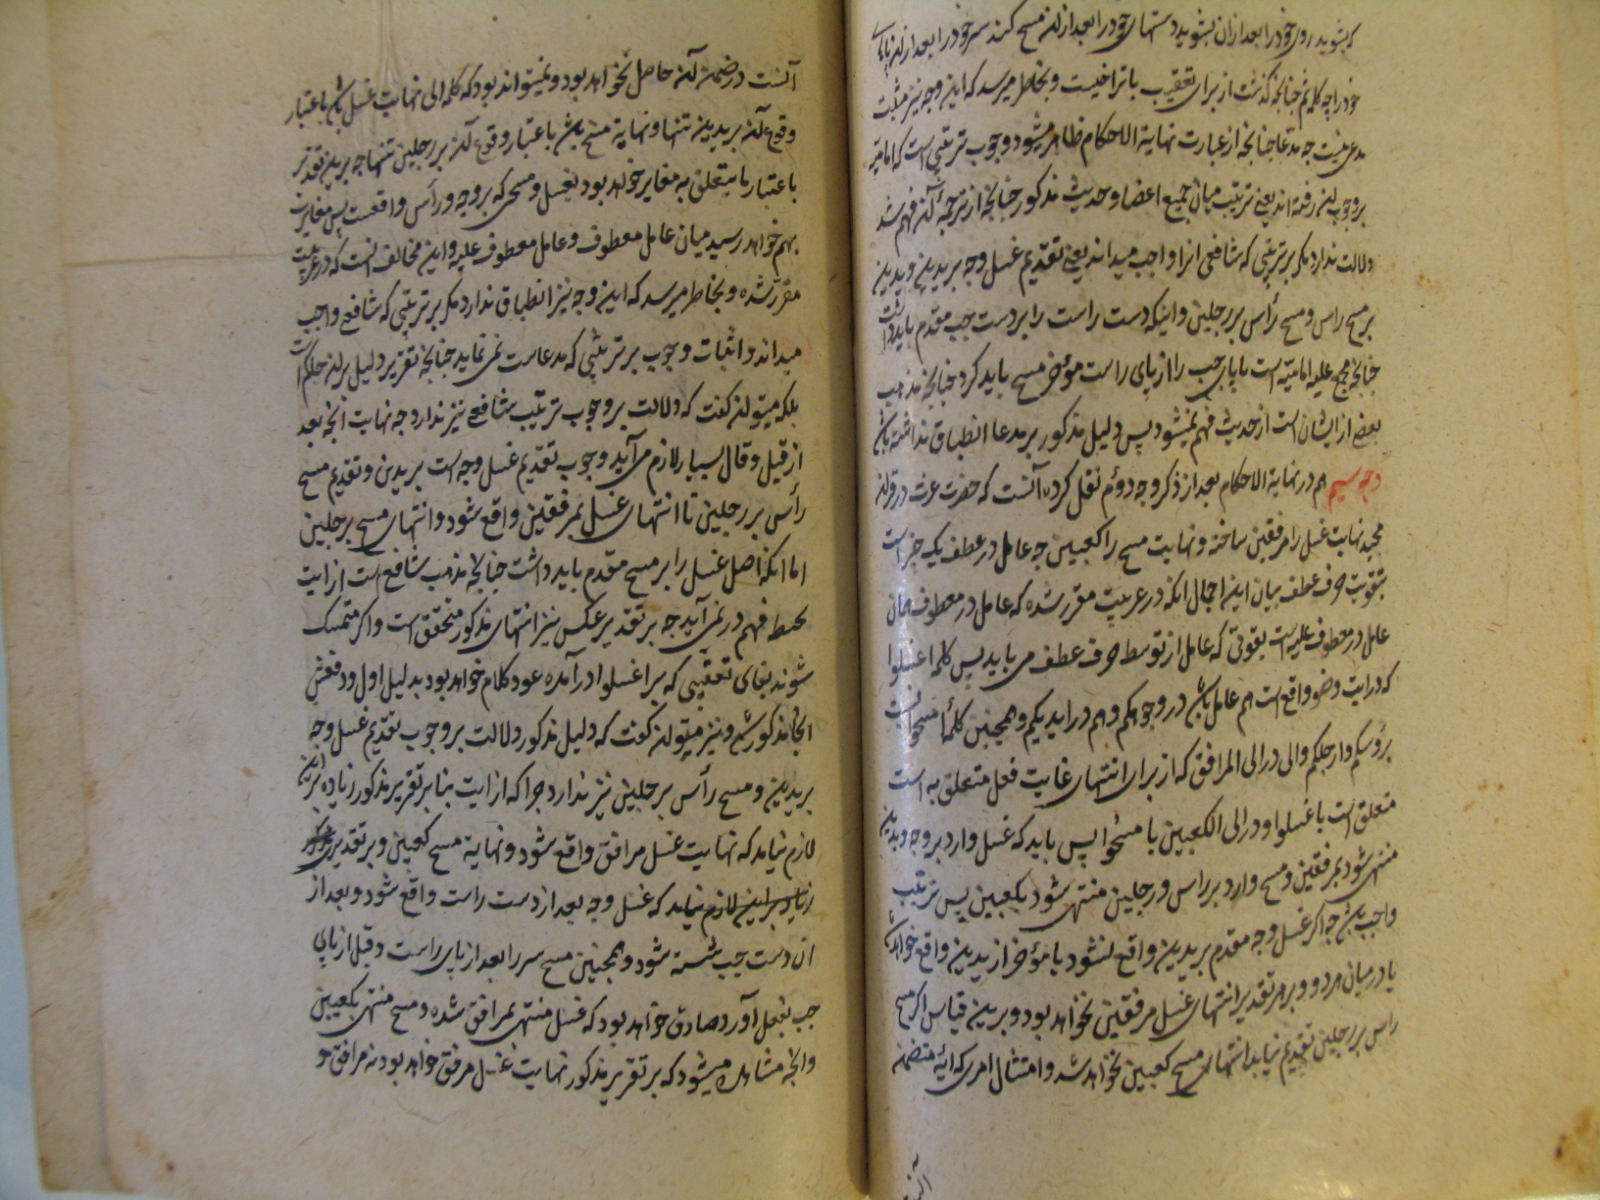 که بشوید روی خود را بعد از ان بشوید دستهای خود را بعد از ان مسح کند سر خود را بعد از ان پایهای
خود را چه کلمه ثم چنانچه گذشت از برای تعقیب با تراخیست و بخاطر میرسد که این وجه نیز مثبت
مدعی نیست چه مدعا چنانچه از عبارت نهایة الاحکام ظاهر میشود وجوب ترتیبی است که امامیه
بر وجوب ان رفته اند یعنی ترتیب میان جمیع اعضا و حدیث مذکور چنانچه از ترجمهٔ آن فهم شد
دلالت ندارد مکر بر ترتیبی که شافعی انرا واجب میداند یعنی تقدیم غسل وجه بر یدین و یدین
بر مسح راس و مسح رأس بر رجلین و اینکه دست راست را بر دست چپ مقدم باید داشت
چنانچه مجمع علیه امامیه است یا پای چپ را از پای راست مؤخر مسح باید کرد چنانچه مذهب
بعضی از ایشان است از حدیث فهم نمیشود پس دلیل مذکور بر مدعا انطباق نداشته باشد
وجه سیم هم در نهایة الاحکام بعد از ذکر وجه دوئم نقل کرده آنست که حضرت عزت در قران
مجید نهایت غسل را مرفقین ساخته و نهایت مسح را کعبین چه عامل در عطف یک چیز است
بتقویت حرف عطف بیان این اجمال انکه در عربیت مقرر شده که عامل در معطوف همان
عامل در معطوف علیه است بقوتی که عامل از توسط حرف عطف می یابد پس کلمه اغسلوا
که در ایت وضو واقع است هم عامل باشد در وجوهکم و هم در ایدیکم و همچنین کلمهٔ امسحوا نسبت
برؤسکم و ارجلکم و الی در الی المرافق که از برای انتهای غایت فعل متعلق به است
متعلق است با غسلوا و در الی الکعبین با مسحوا پس باید که غسل وارد بر وجه و یدین
منتهی شود بمرفقین و مسح وارد بر راس و رجلین منتهی شود بکعبین پس ترتیب
واجب باشد چه اکر غسل وجه مقدم بر یدین واقع نشود یا مؤخر از یدین واقع خواهد شد
یا در میان هر دو و بر هر تقدیر انتهای غسل مرفقین نخواهد بود و بر این قیاس اکر مسح
راس بر رجلین تقدیم نیابد انتهای مسح کعبین نخواهد شد و امتثال امری که ایهٔ متضمن
آنست
آنست در ضمن آن حاصل نخواهد بود و نمیتواند بود که کلمه الی نهایت غسل باشد باعتبار
وقوع آن بر یدین تنها و نهایة مسح باشد باعتبار وقوع آن بر رجلین تنها چه برین تقدیر
باعتبار ما یتعلق به مغایر خواهد بود بغسل و مسحی که بر وجه و رأس واقعست پس مغایرت
بهم خواهد رسید میان عامل معطوف و عامل معطوف علیه و این مخالف انست که در عربیت
مقرر شده و بخاطر میرسد که این وجه نیز انطباق ندارد مکر بر ترتیبی که شافعی واجب
میداند و اثبات وجوب بر ترتیبی که مدعاست نمی نماید چنانچه تقریر دلیل بران حاکم است
بلکه میتوان کفت که دلالت بر وجوب ترتیب شافعی نیز ندارد چه نهایت انچه بعد
از قیل و قال بسیار لازم می آید وجوب تقدیم غسل وجه است بر یدین و تقدیم مسح
رأس بر رجلین تا انتهای غسل بمرفقین واقع شود و انتهای مسح برجلین
اما انکه اصل غسل را بر مسح مقدم باید داشت چنانچه مذهب شافعی است از ایت
بحیطه فهم در نمی آید چه بر تقدیر عکس نیز انتهای مذکور متحقق است و اکر متمسک
شوند بفای تعقیبی که بر اغسلوا در آمده عود کلام خواهد بود بدلیل اول و دفعش
انجا مذکور شد و نیز میتوان کفت که دلیل مذکور دلالت بر وجوب تقدیم غسل وجه
بر یدین و مسح رأس بر رجلین نیز ندارد چرا که از ایت بنا بر تقریر مذکور زیاده بر این
لازم نیاید که نهایت غسل مرافق واقع شود و نهایة مسح کعبین و بر تقدیری که
زیاده بر این لازم نیاید که غسل وجه بعد از دست راست واقع شود و بعد از
ان دست چپ شسته شود و همچنین مسح سر را بعد از پای راست و قبل از پای
چپ بفعل آورد صادق خواهد بود که غسل منتهی بمرافق شده و مسح منتهی بکعبین
و انچه مشاهده میشود که بر تقریر مذکور نهایت غسل مرفق خواهد بود نه مرافق